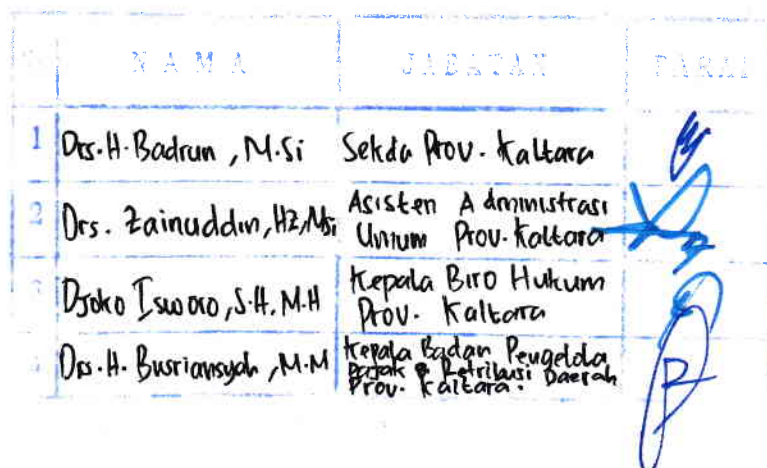 NAMA JABATAN PARAF
1 Drs. H. Badrun, M.Si Sekda Prov. Kaltara
2 Drs. Zainuddin, HZ, M.Si Asisten Administrasi
Umum Prov. Kaltara
3 Djoko Isworo, S.H, M.H Kepala Biro Hukum
Prov. Kaltara
4 Drs. H. Busriansyah, M.M Kepala Badan Pengelola
Pajak & Retribusi Daerah
Prov. Kaltara.